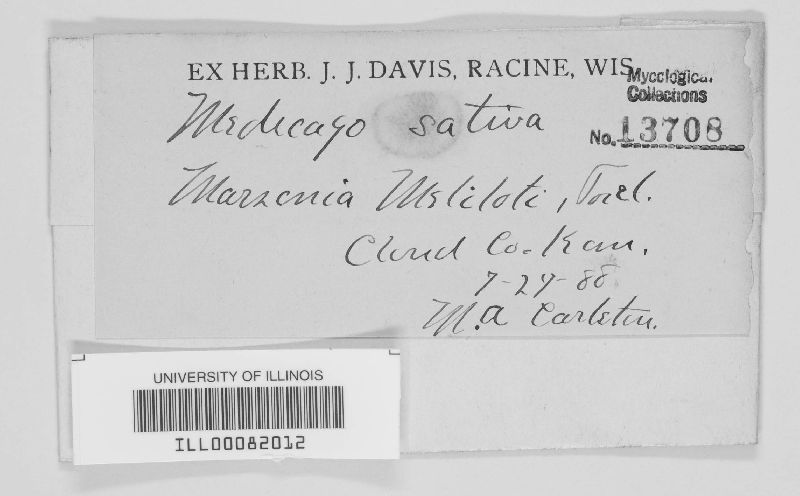 EX HERB. J. J. DAVIS, RACINE, WIS.
Mycological
Collections
No. 13708
Medicago sativa
Marsonia Meliloti, Trel.
Cloud Co. Kan.
7-27-88
M.A Carleton.
UNIVERSITY OF ILLINOIS
ILL00082012